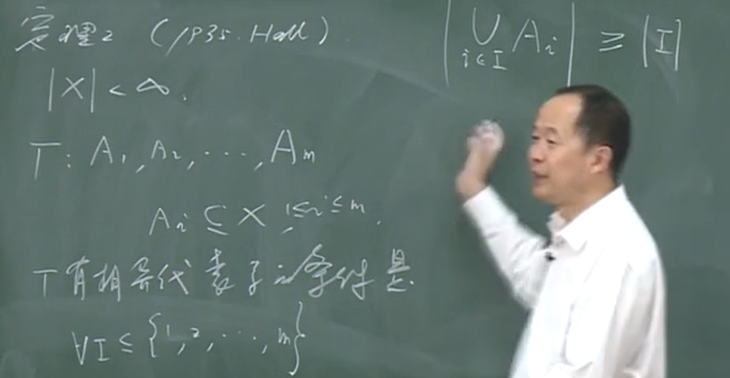 定理2 (1935. Hall).
|X| < ∞.
T: A₁, A₂, ⋯, Aₘ
Aᵢ ⊆ X, 1≤i≤m.
T有相异代表系的条件是
∀I ⊆ {1, 2, ⋯, m}
|⋃_{i∈I} Aᵢ| ≥ |I|